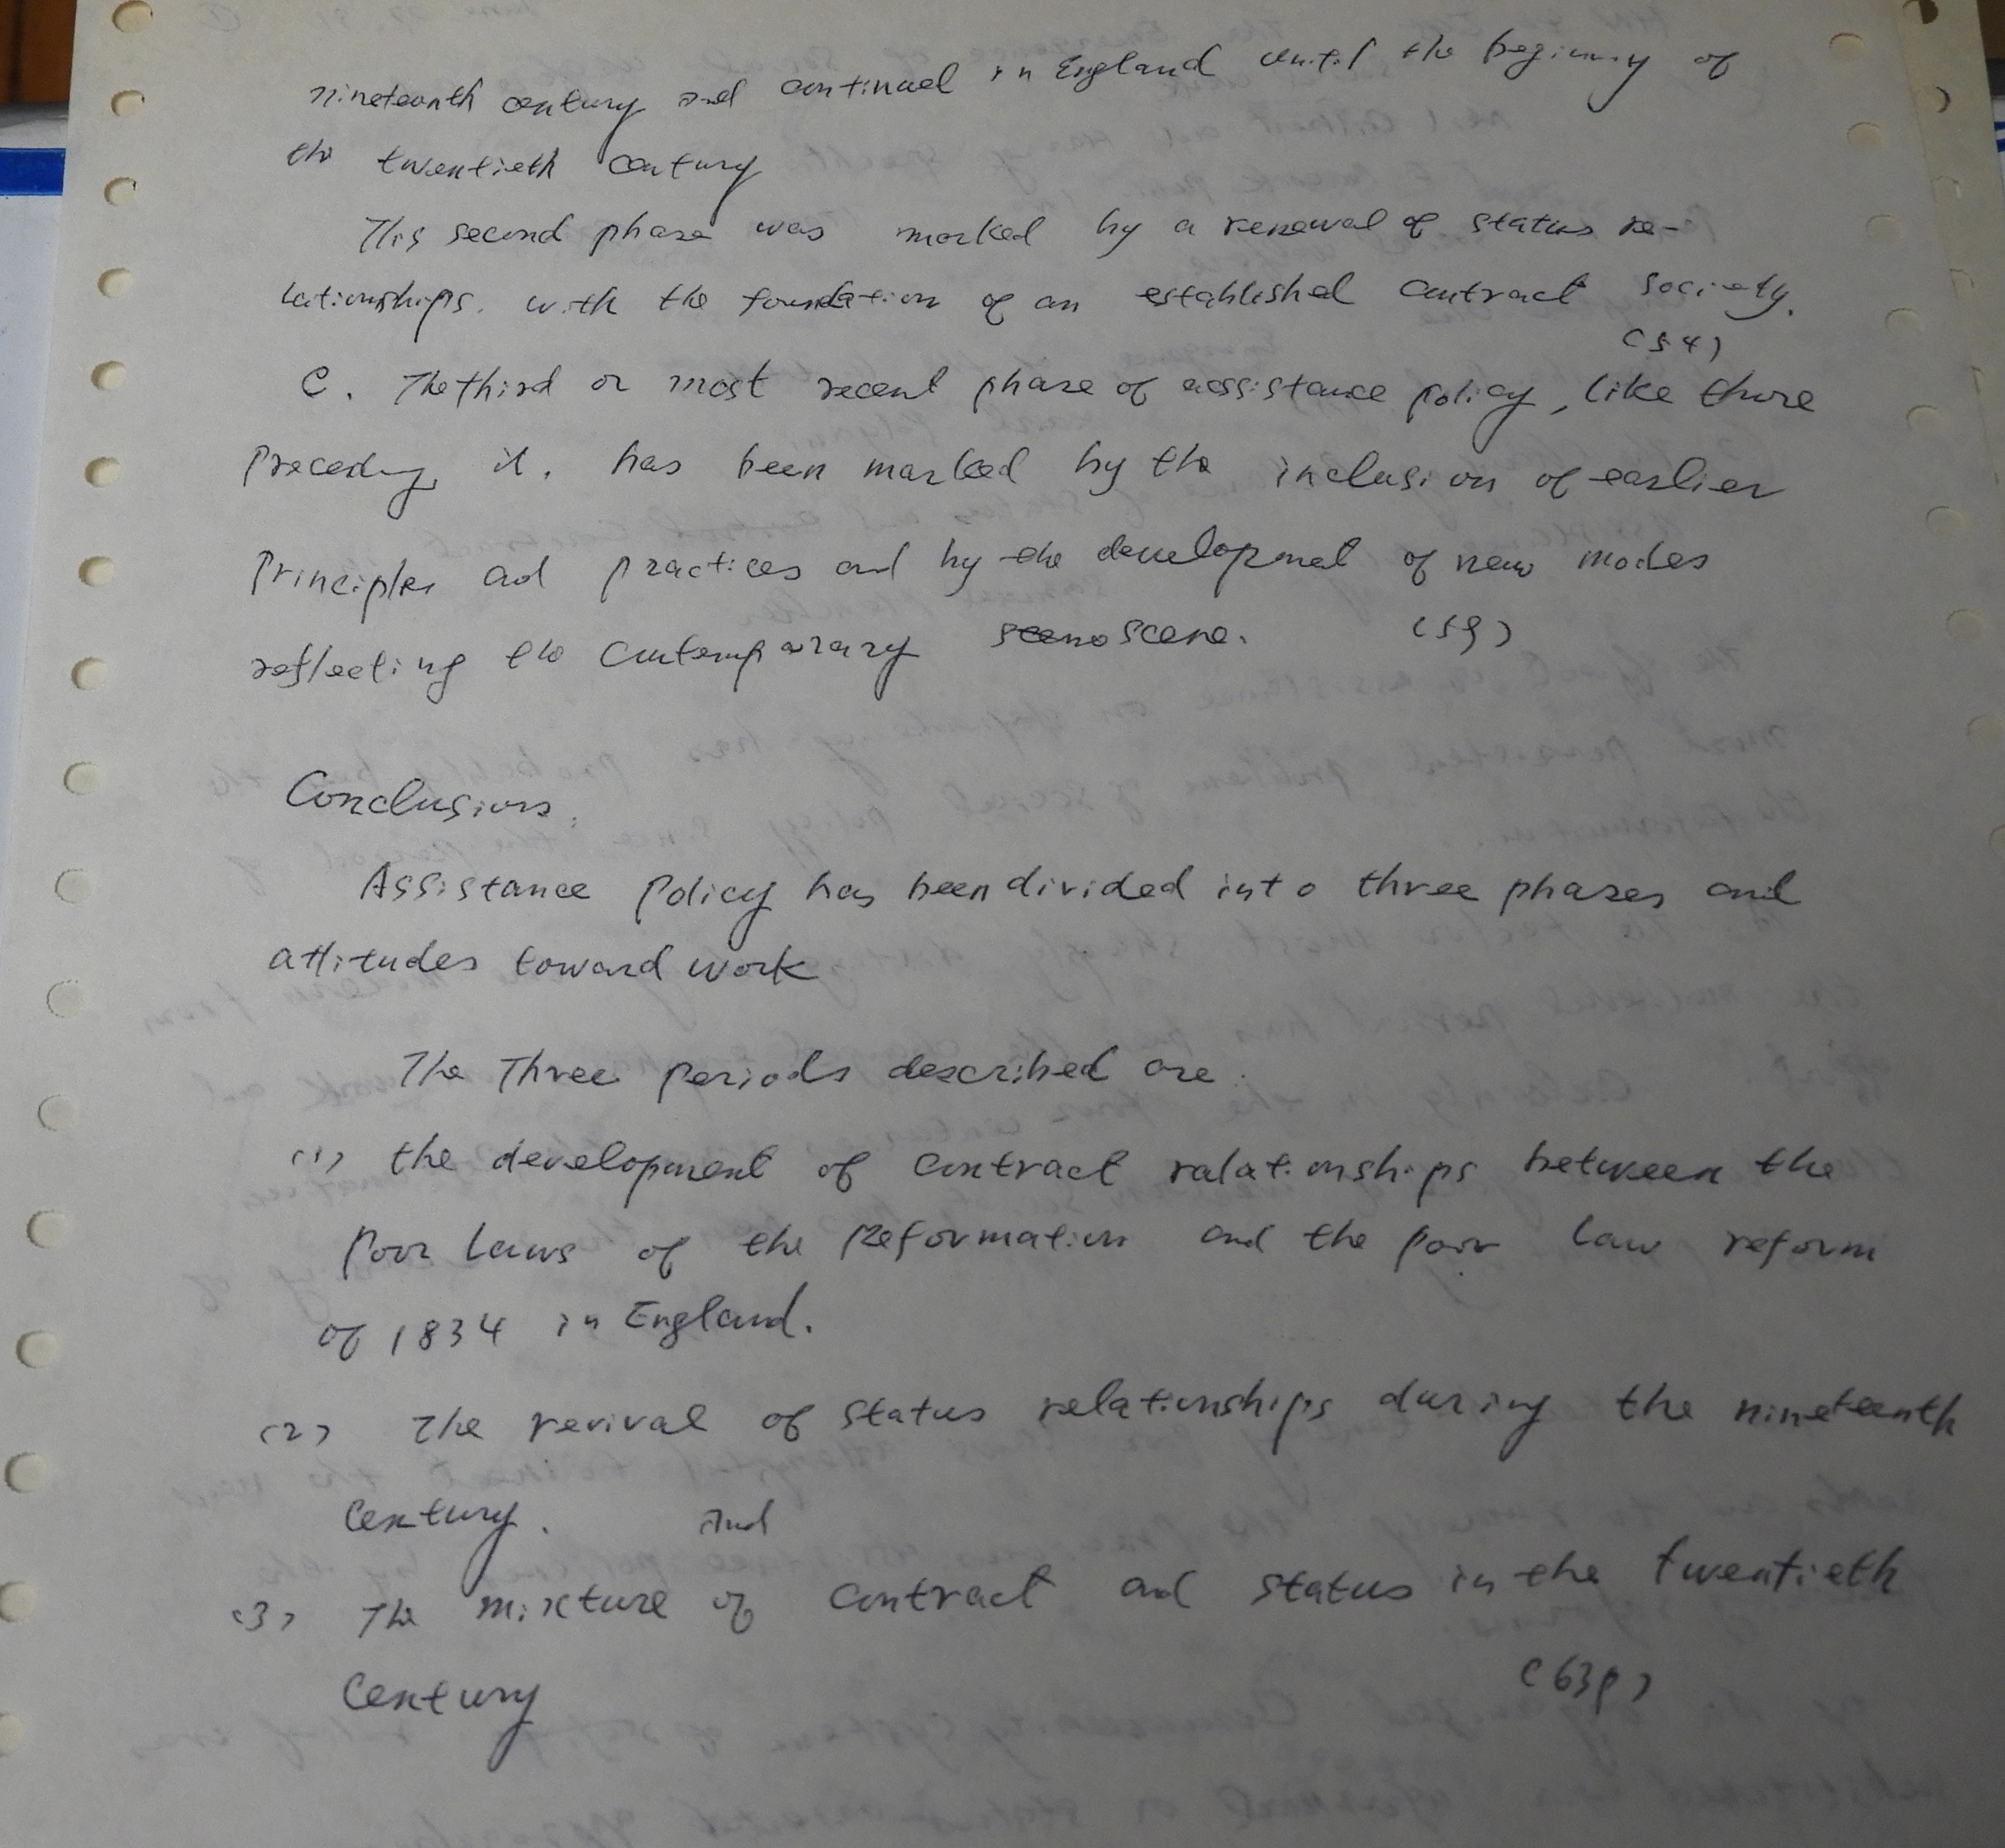 nineteenth century and continued in England until the beginning of
the twentieth century
This second phase was marked by a renewal of status re-
lationships. with the foundation of an established contract society.
(54)
C. The third or most recent phase of assistance policy, like those
preceding it, has been marked by the inclusion of earlier
Principles and practices and by the development of new modes
reflecting the contemporary scene. (59)
Conclusions.
Assistance policy has been divided into three phases and
attitudes toward work
The Three periods described are:
(1) the development of contract relationships between the
Poor Laws of the Reformation and the poor law reform
of 1834 in England.
(2) The revival of status relationships during the nineteenth
Century. And
(3) The mixture of contract and status in the twentieth
Century (63p)